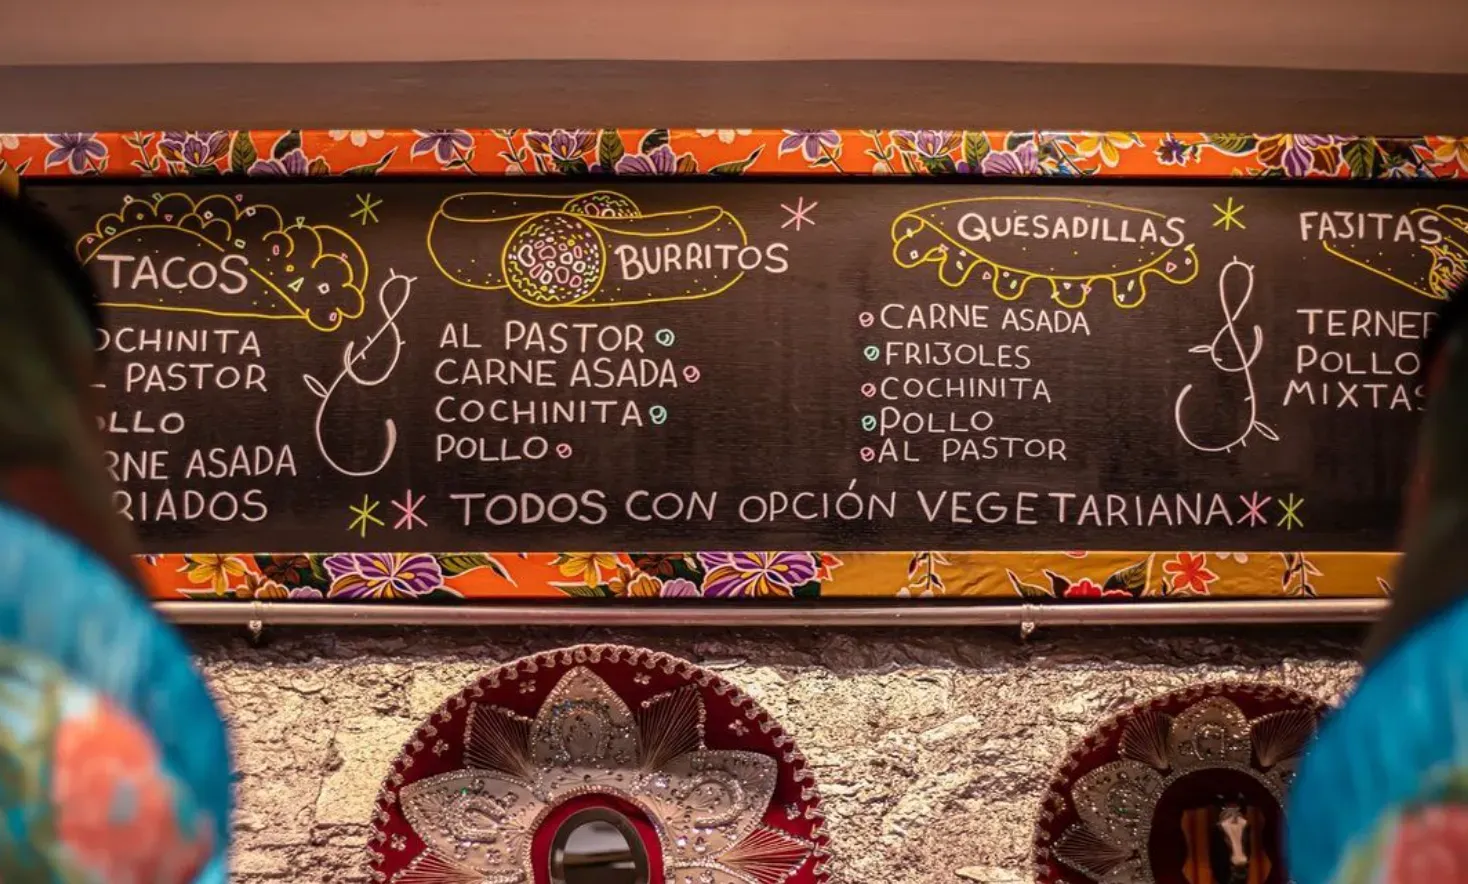 TACOS
OCHINITA
PASTOR
LLO
RNE ASADA
RIADOS
BURRITOS
AL PASTOR
CARNE ASADA
COCHINITA
POLLO
QUESADILLAS
CARNE ASADA
FRIJOLES
COCHINITA
POLLO
AL PASTOR
FAJITAS
TERNER
POLLO
MIXTAS
TODOS CON OPCIÓN VEGETARIANA